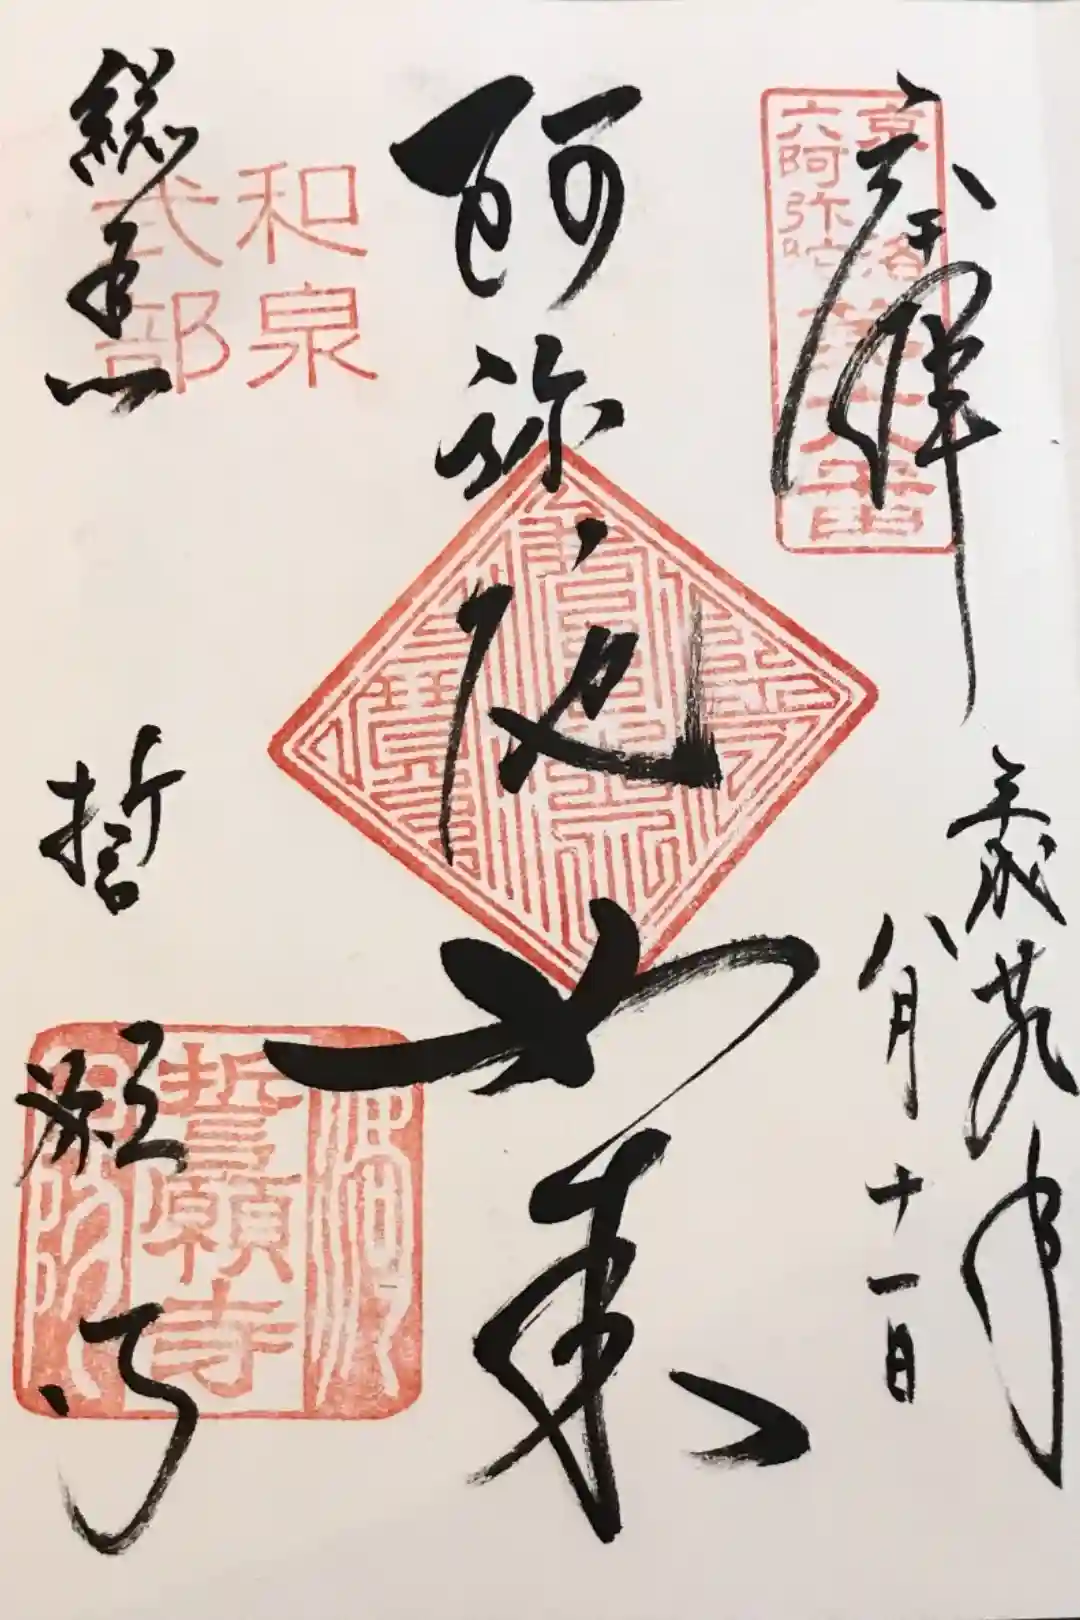 奉拝
京洛
六阿弥陀
第六番
平成廿九年
八月十一日
阿弥陀如来
和泉
式部
総本山
誓願寺
誓願寺